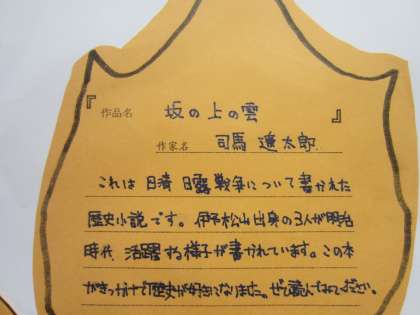 『 作品名 坂の上の雲 』
作家名 司馬遼太郎
これは 日清 日露戦争について書かれた
歴史小説です。伊予松山出身の3人が明治
時代 活躍する様子が書かれています。この本
がきっかけで歴史が好きになりました。ぜひ読んでみてください。